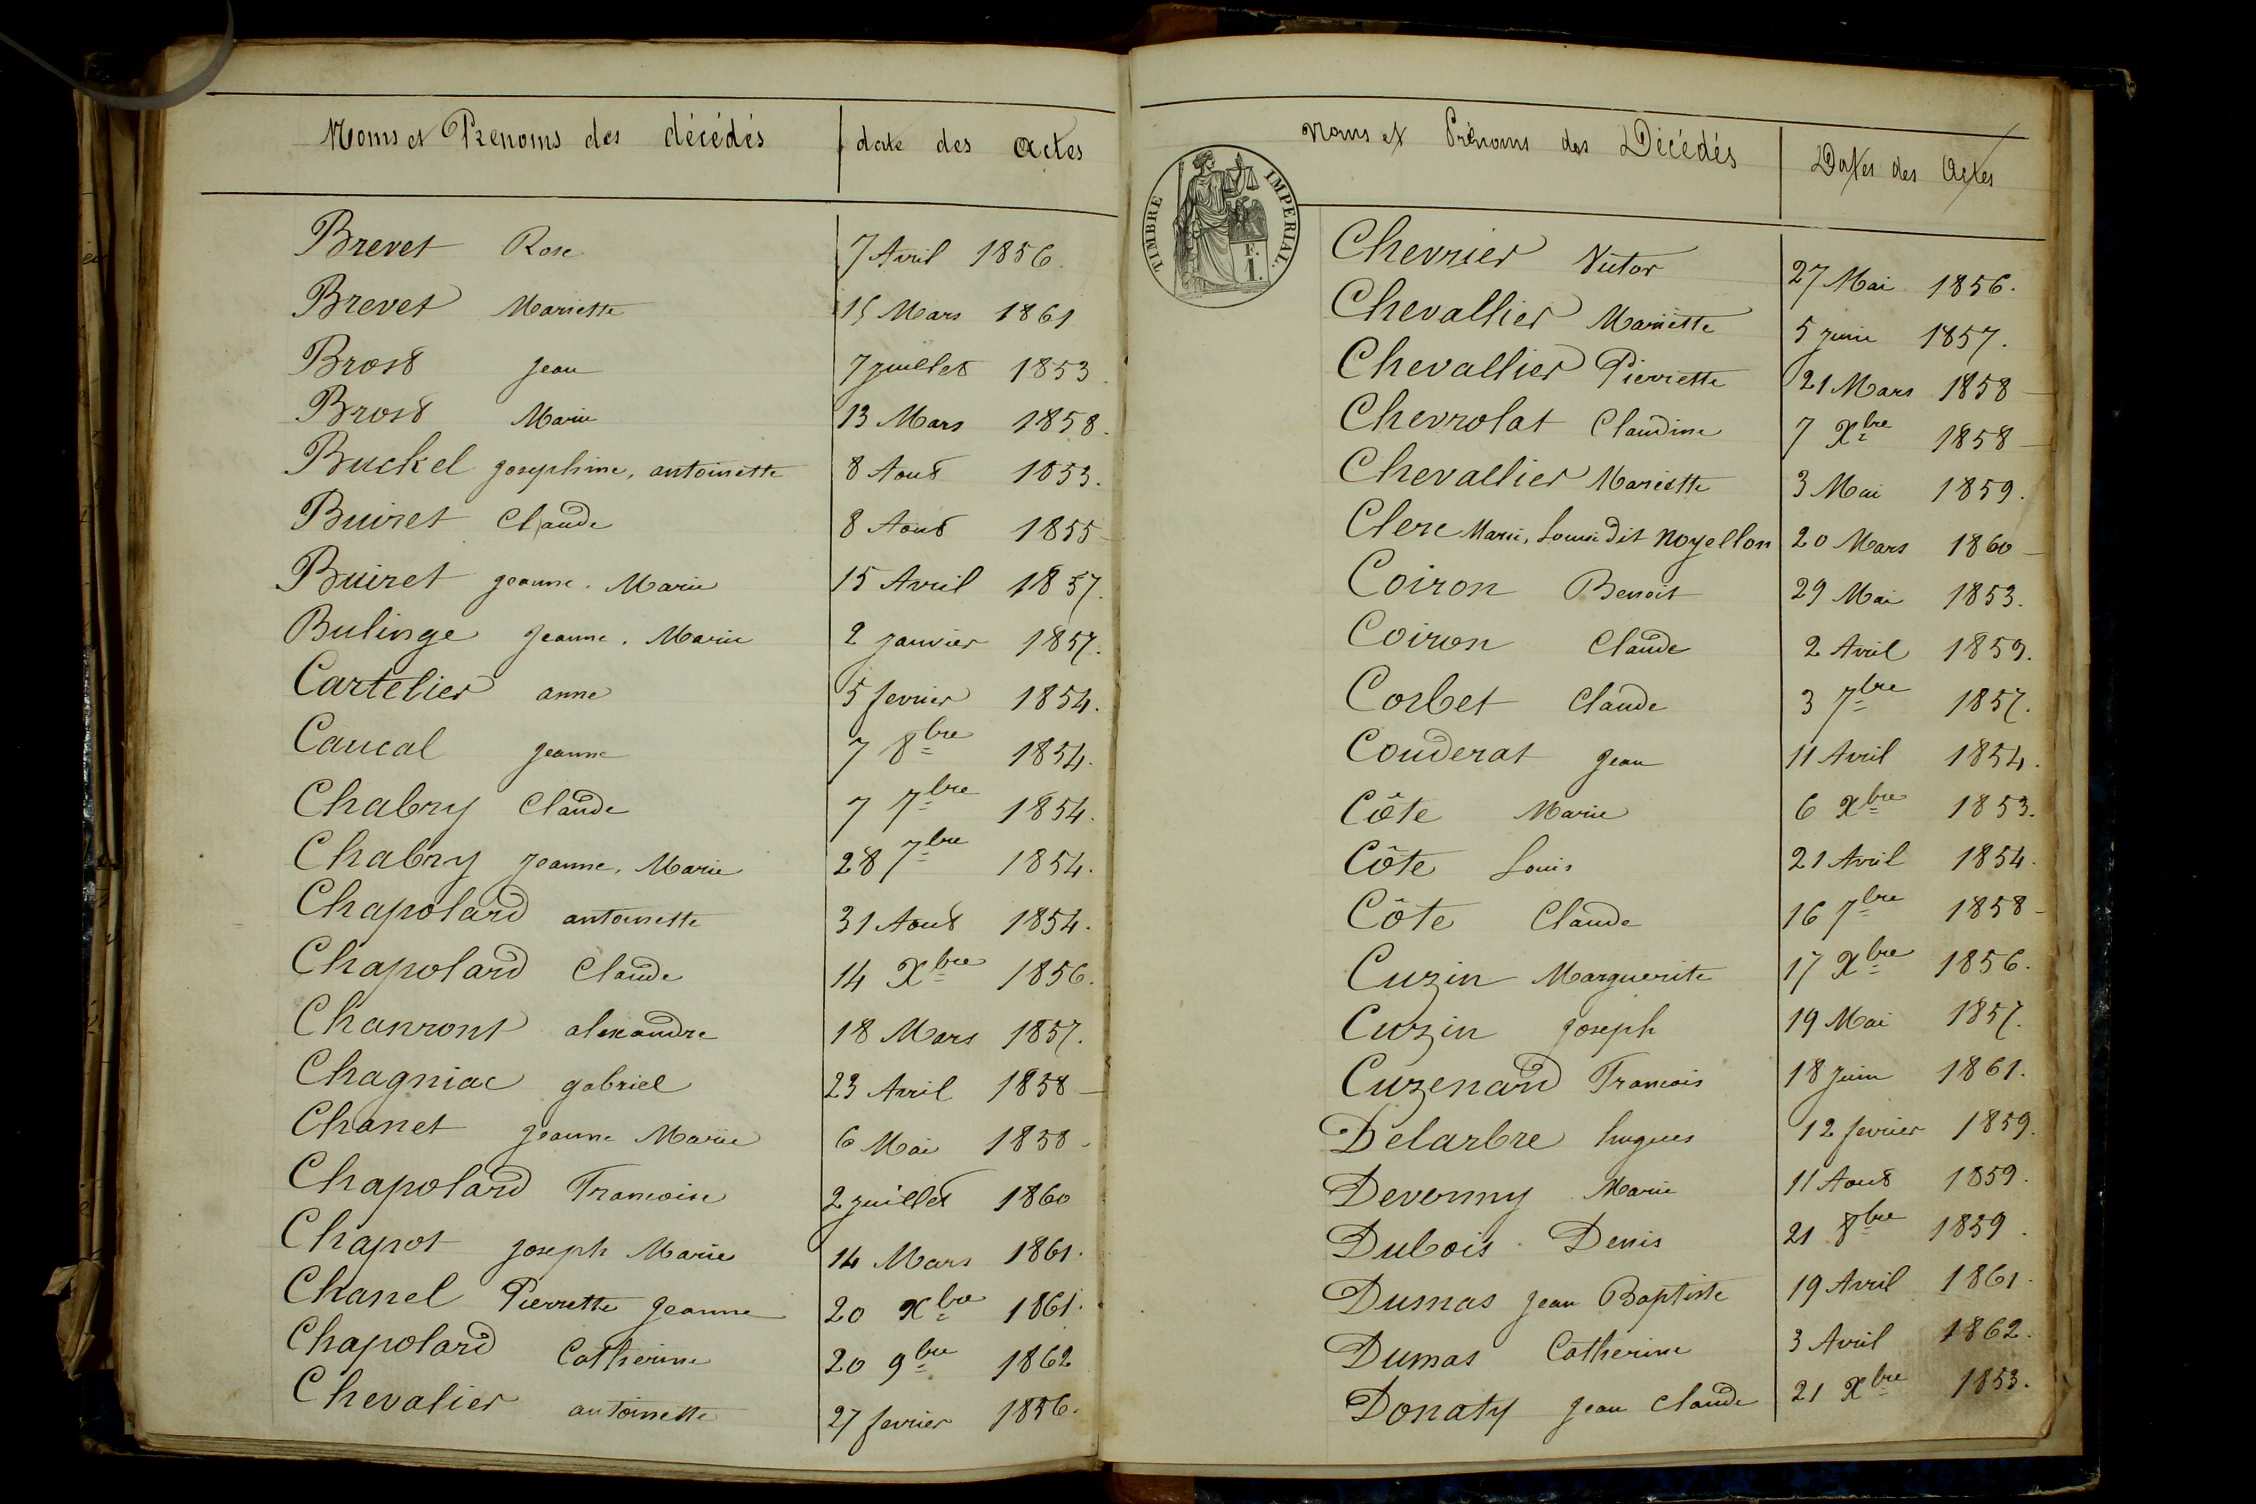 Noms et Prenoms des décédés date des Actes
Brevet Rose 7 Avril 1856.
Brevet Mariette 15 Mars 1861
Brost Jean 7 juillet 1853.
Brost Marie 13 Mars 1858.
Buckel josephine, antoinette 8 Aout 1853.
Buiret Claude 8 Aout 1855-
Buiret jeanne. Marie 15 Avril 1857.
Bulinge jeanne. Marie 2 janvier 1857.
Cartelier anne 5 fevrier 1854.
Caucal jeanne 7 8bre 1854.
Chabry Claude 7 7bre 1854.
Chabry jeanne. Marie 28 7bre 1854.
Chapolard antoinette 31 Aout 1854.
Chapolard Claude 14 Xbre 1856.
Chanront alexandre 18 Mars 1857.
Chagniac gabriel 23 Avril 1858-
Chanet jeanne Marie 6 Mai 1858-
Chapolard Francoise 2 juillet 1860
Chapot joseph Marie 14 Mars 1861.
Chanel Pierrette jeanne 20 Xbre 1861.
Chapolard Catherine 20 9bre 1862
Chevalier antoinette 27 fevrier 1856.
TIMBRE IMPERIAL.
F.
1.
Noms et Prénoms des Décédés Dates des Actes
Chevrier Victor 27 Mai 1856.
Chevallier Mariette 5 juin 1857.
Chevallier Pierrette 21 Mars 1858-
Chevrolat Claudine 7 Xbre 1858-
Chevallier Mariette 3 Mai 1859.
Clerc Marie, Louise dit Noyellon 20 Mars 1860-
Coiron Benoit 29 Mai 1853.
Coiron Claude 2 Avril 1859.
Corbet Claude 3 7bre 1857.
Couderat jean 11 Avril 1854.
Côte Marie 6 Xbre 1853.
Côte Louis 21 Avril 1854.
Côte Claude 16 7bre 1858-
Cuzin Marguerite 17 Xbre 1856.
Cuzin joseph 19 Mai 1857.
Cuzenard Francois 18 juin 1861.
Delarbre hugues 12 fevrier 1859.
Devermy Marie 11 Aout 1859.
Dubois. Denis 21 8bre 1859.
Dumas jean Baptiste 19 Avril 1861.
Dumas Catherine 3 Avril 1862.
Donaty jean Claude 21 Xbre 1853.